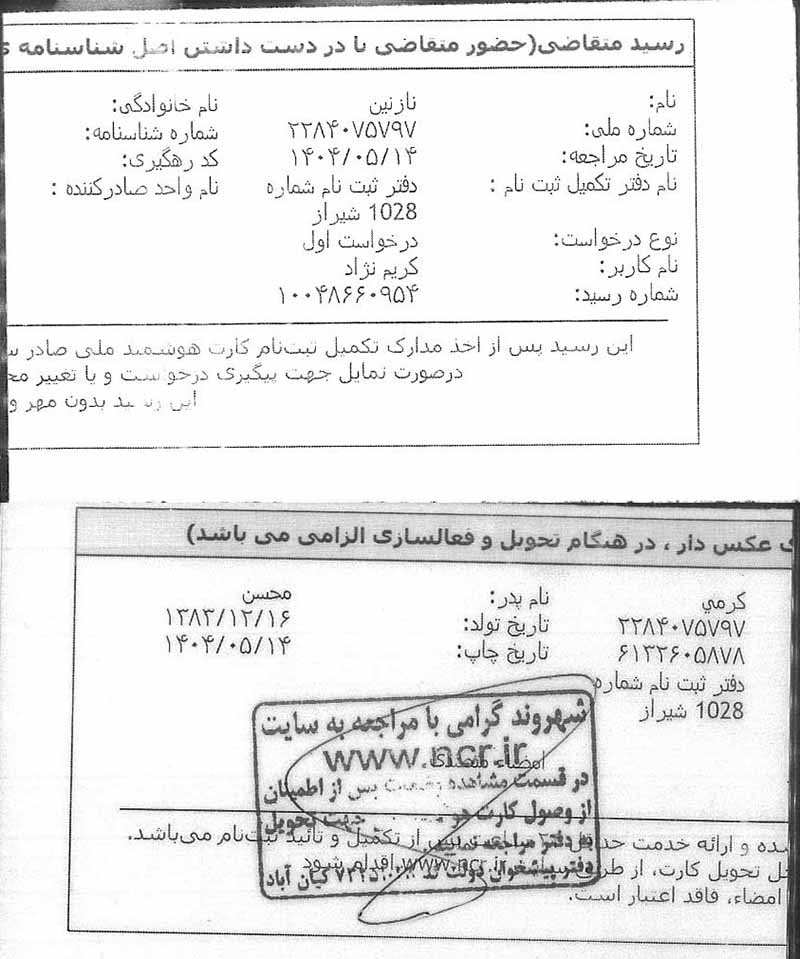 رسید متقاضی(حضور متقاضی با در دست داشتن اصل شناسنامه
نام: نازنین نام خانوادگی:
شماره ملی: ۲۲۸۴۰۷۵۷۹۷ شماره شناسنامه:
تاریخ مراجعه: ۱۴۰۴/۰۵/۱۴ کد رهگیری:
نام دفتر تکمیل ثبت نام : دفتر ثبت نام شماره نام واحد صادرکننده :
1028 شیراز
نوع درخواست: درخواست اول
نام کاربر: کریم نژاد
شماره رسید: ۱۰۰۴۸۶۶۰۹۵۴
این رسید پس از اخذ مدارک تکمیل ثبت‌نام کارت هوشمند ملی صادر
درصورت تمایل جهت پیگیری درخواست و یا تغییر
این رسید بدون مهر و
ی عکس دار ، در هنگام تحویل و فعالسازی الزامی می باشد)
کرمي نام پدر: محسن
۲۲۸۴۰۷۵۷۹۷ تاریخ تولد: ۱۳۸۳/۱۲/۱۶
۶۱۲۲۶۰۵۸۷۸ تاریخ چاپ: ۱۴۰۴/۰۵/۱۴
دفتر ثبت نام شماره
1028 شیراز
شهروند گرامی با مراجعه به سایت
www.ncr.ir
امضاء متصدی
در قسمت مشاهده وضعیت پس از اطمینان
از وصول کارت جهت تحویل
به دفتر مراجعه نمایید
دفتر پیشخوان دولت کیان آباد
شده و ارائه خدمت پس از تکمیل و تائید ثبت‌نام می‌باشد.
حل تحویل کارت، از طریق www.ncr.ir اقدام شود
امضاء، فاقد اعتبار است.